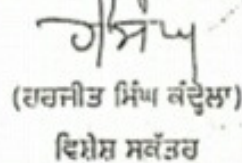 (ਹਰਜੀਤ ਸਿੰਘ ਕੰਦੂੇਲਾ)
ਵਿਸ਼ੇਸ਼ ਸਕੱਤਰ